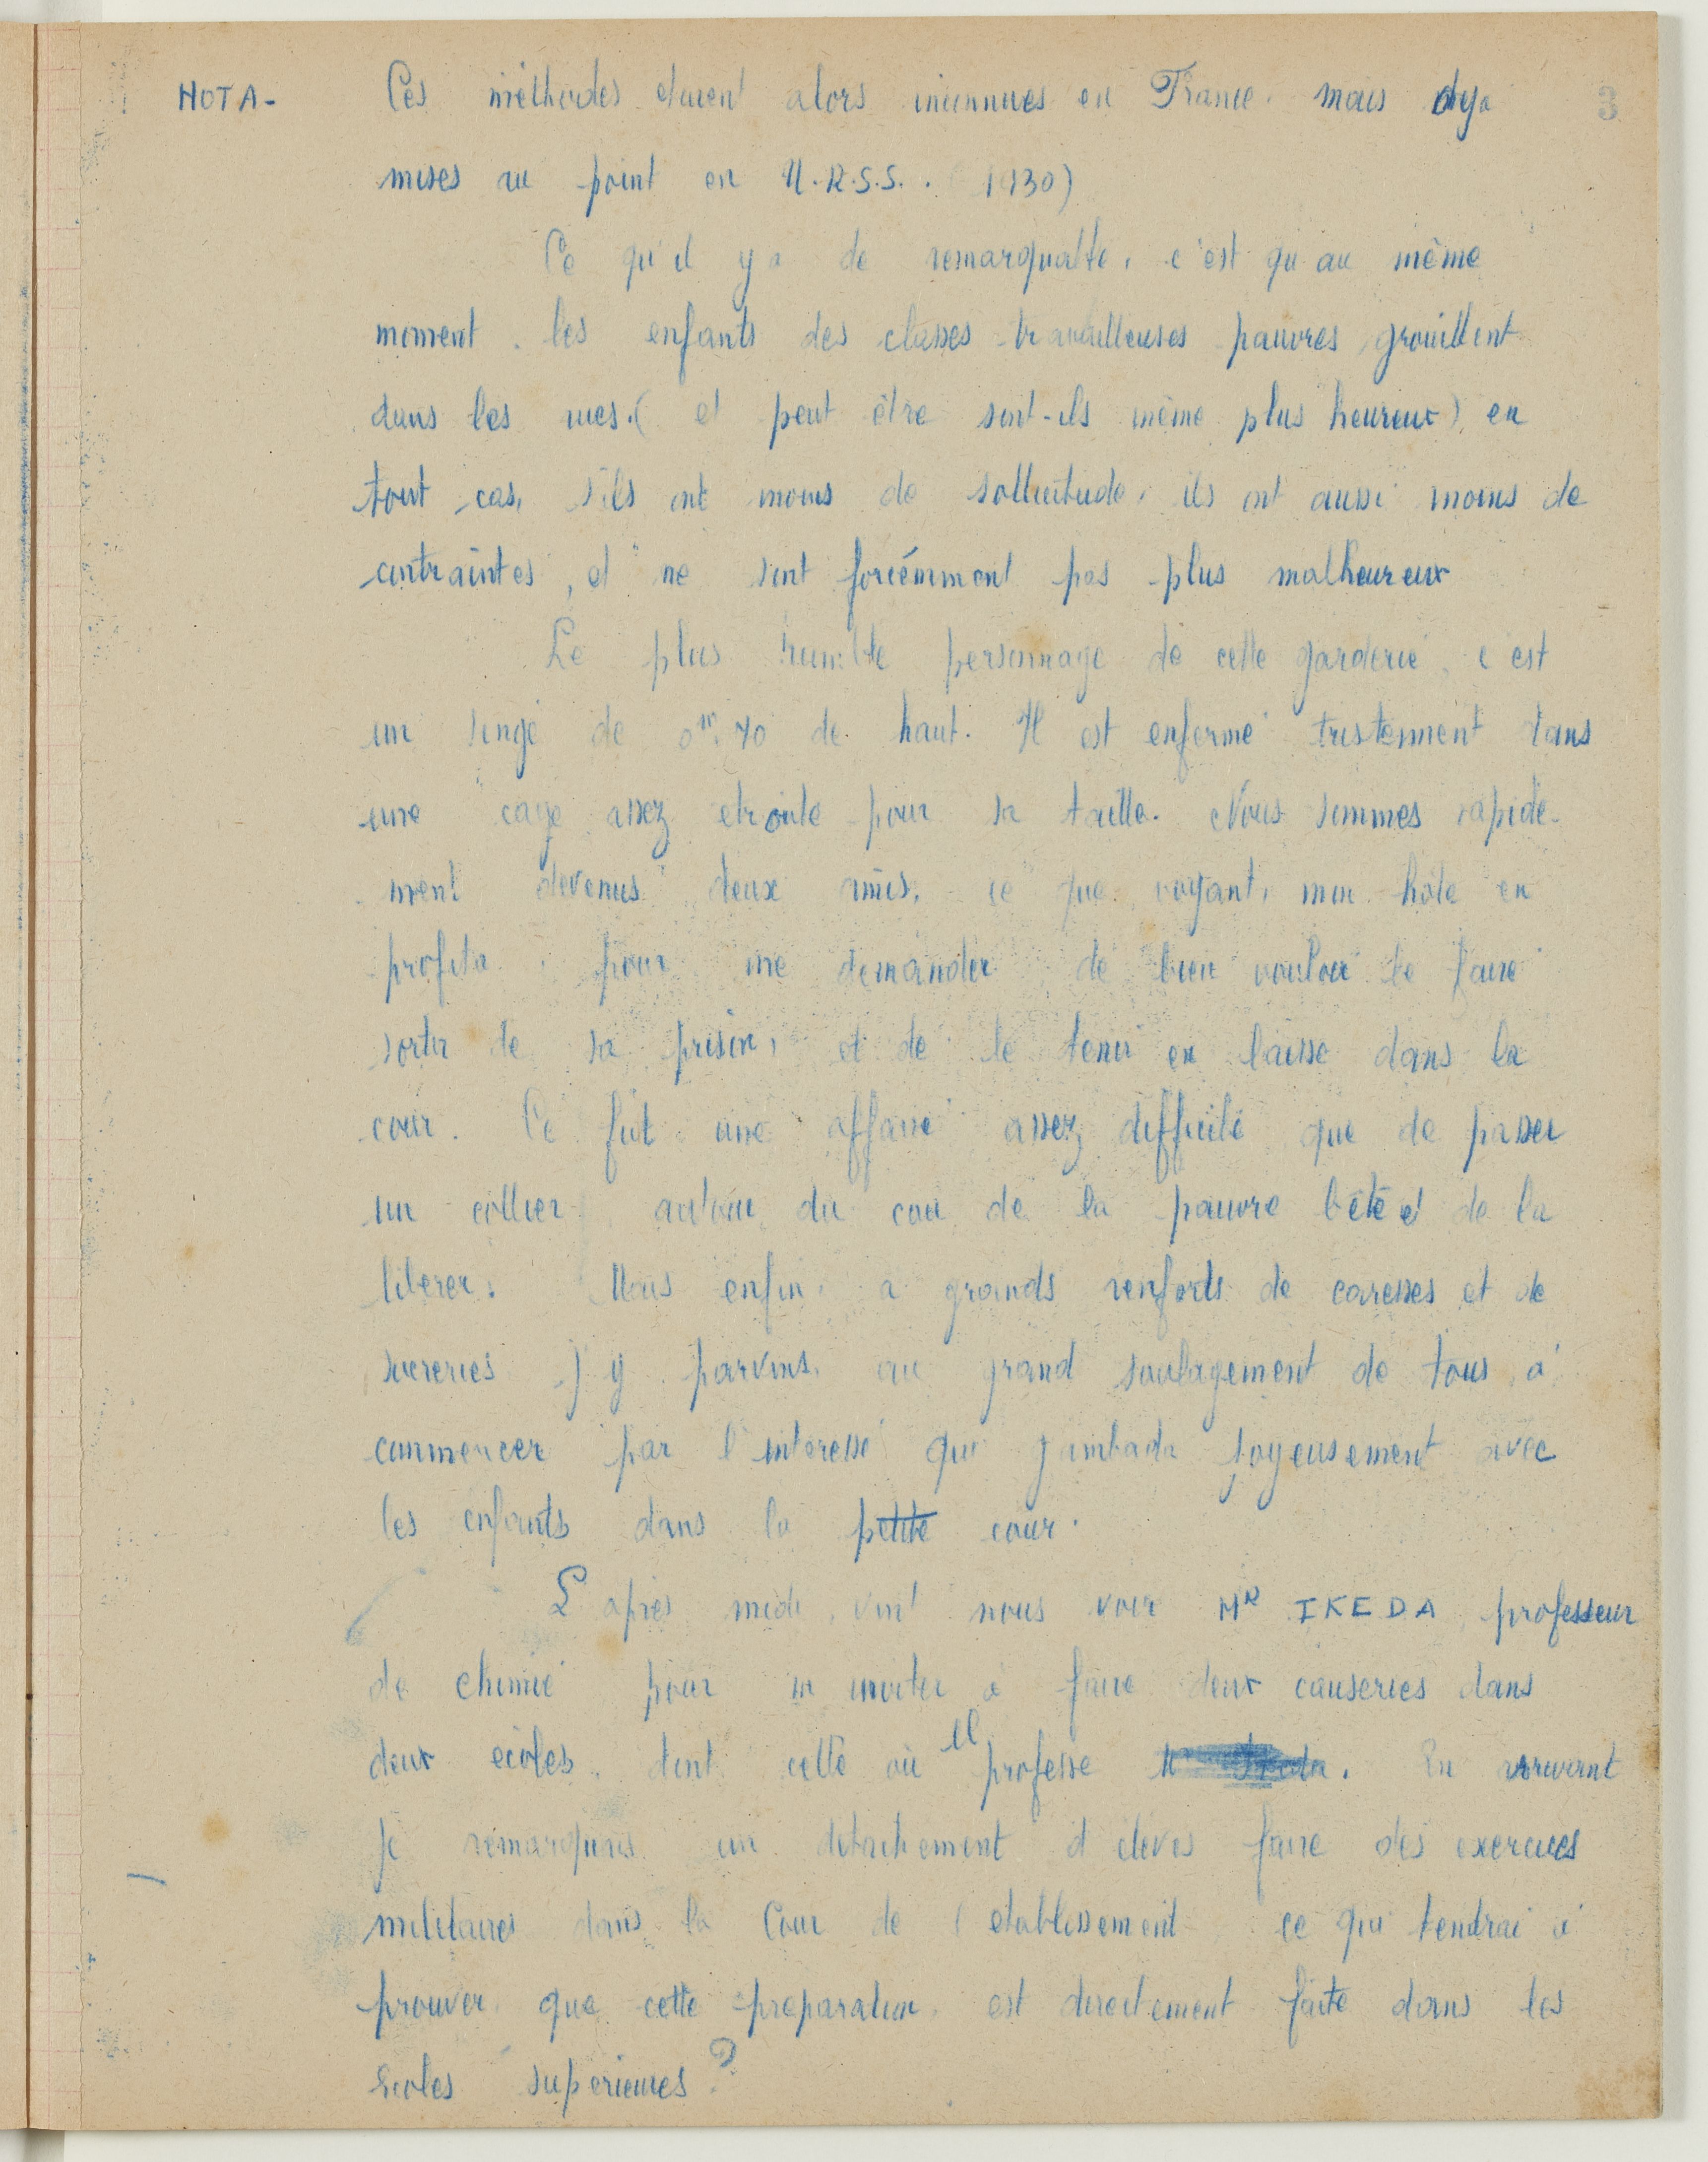 NOTA- Ces méthodes etaient alors inconnues en France. mais deja 3
mises au point en U.R.S.S.. (1930)
Ce qu'il y a de remarquable, c'est qu'au même
moment. les enfants des classes travailleuses pauvres grouillent
dans les rues.( et peut être sont-ils même plus heureux) en
tout cas, s'ils ont moins de sollicitude, ils ont aussi moins de
contraintes, et ne sont forcémment pas plus malheureux
Le plus humble personnage de cette garderie, c'est
un singe de 0m.70 de haut. Il est enfermé tristement dans
une cage assez etroite pour sa taille. Nous sommes rapide-
ment devenus deux amis, ce que voyant, mon hôte en
profita, pour me demander de bien vouloir le faire
sortir de sa prison, et de le tenir en laisse dans la
cour. Ce fût une affaire assez difficile que de passer
un collier autour du cou de la pauvre bête et de la
liberer. Mais enfin, a grands renforts de caresses et de
sucreries j'y parvins, au grand soulagement de tous, à
commencer par l'interessé qui gambada joyeusement avec
les enfants dans la petite cour.
L'après midi, vint nous voir MR IKEDA, professeur
de chimie pour m'inviter à faire deux causeries dans
deux ecoles, dont celle où il professe. En arrivant
je remarquais un detachement d'eleves faire des exercices
militaires dans la Cour de l'etablissement ce qui tendrai à
prouver que cette preparation, est directement faite dans les
Ecoles superieures ?